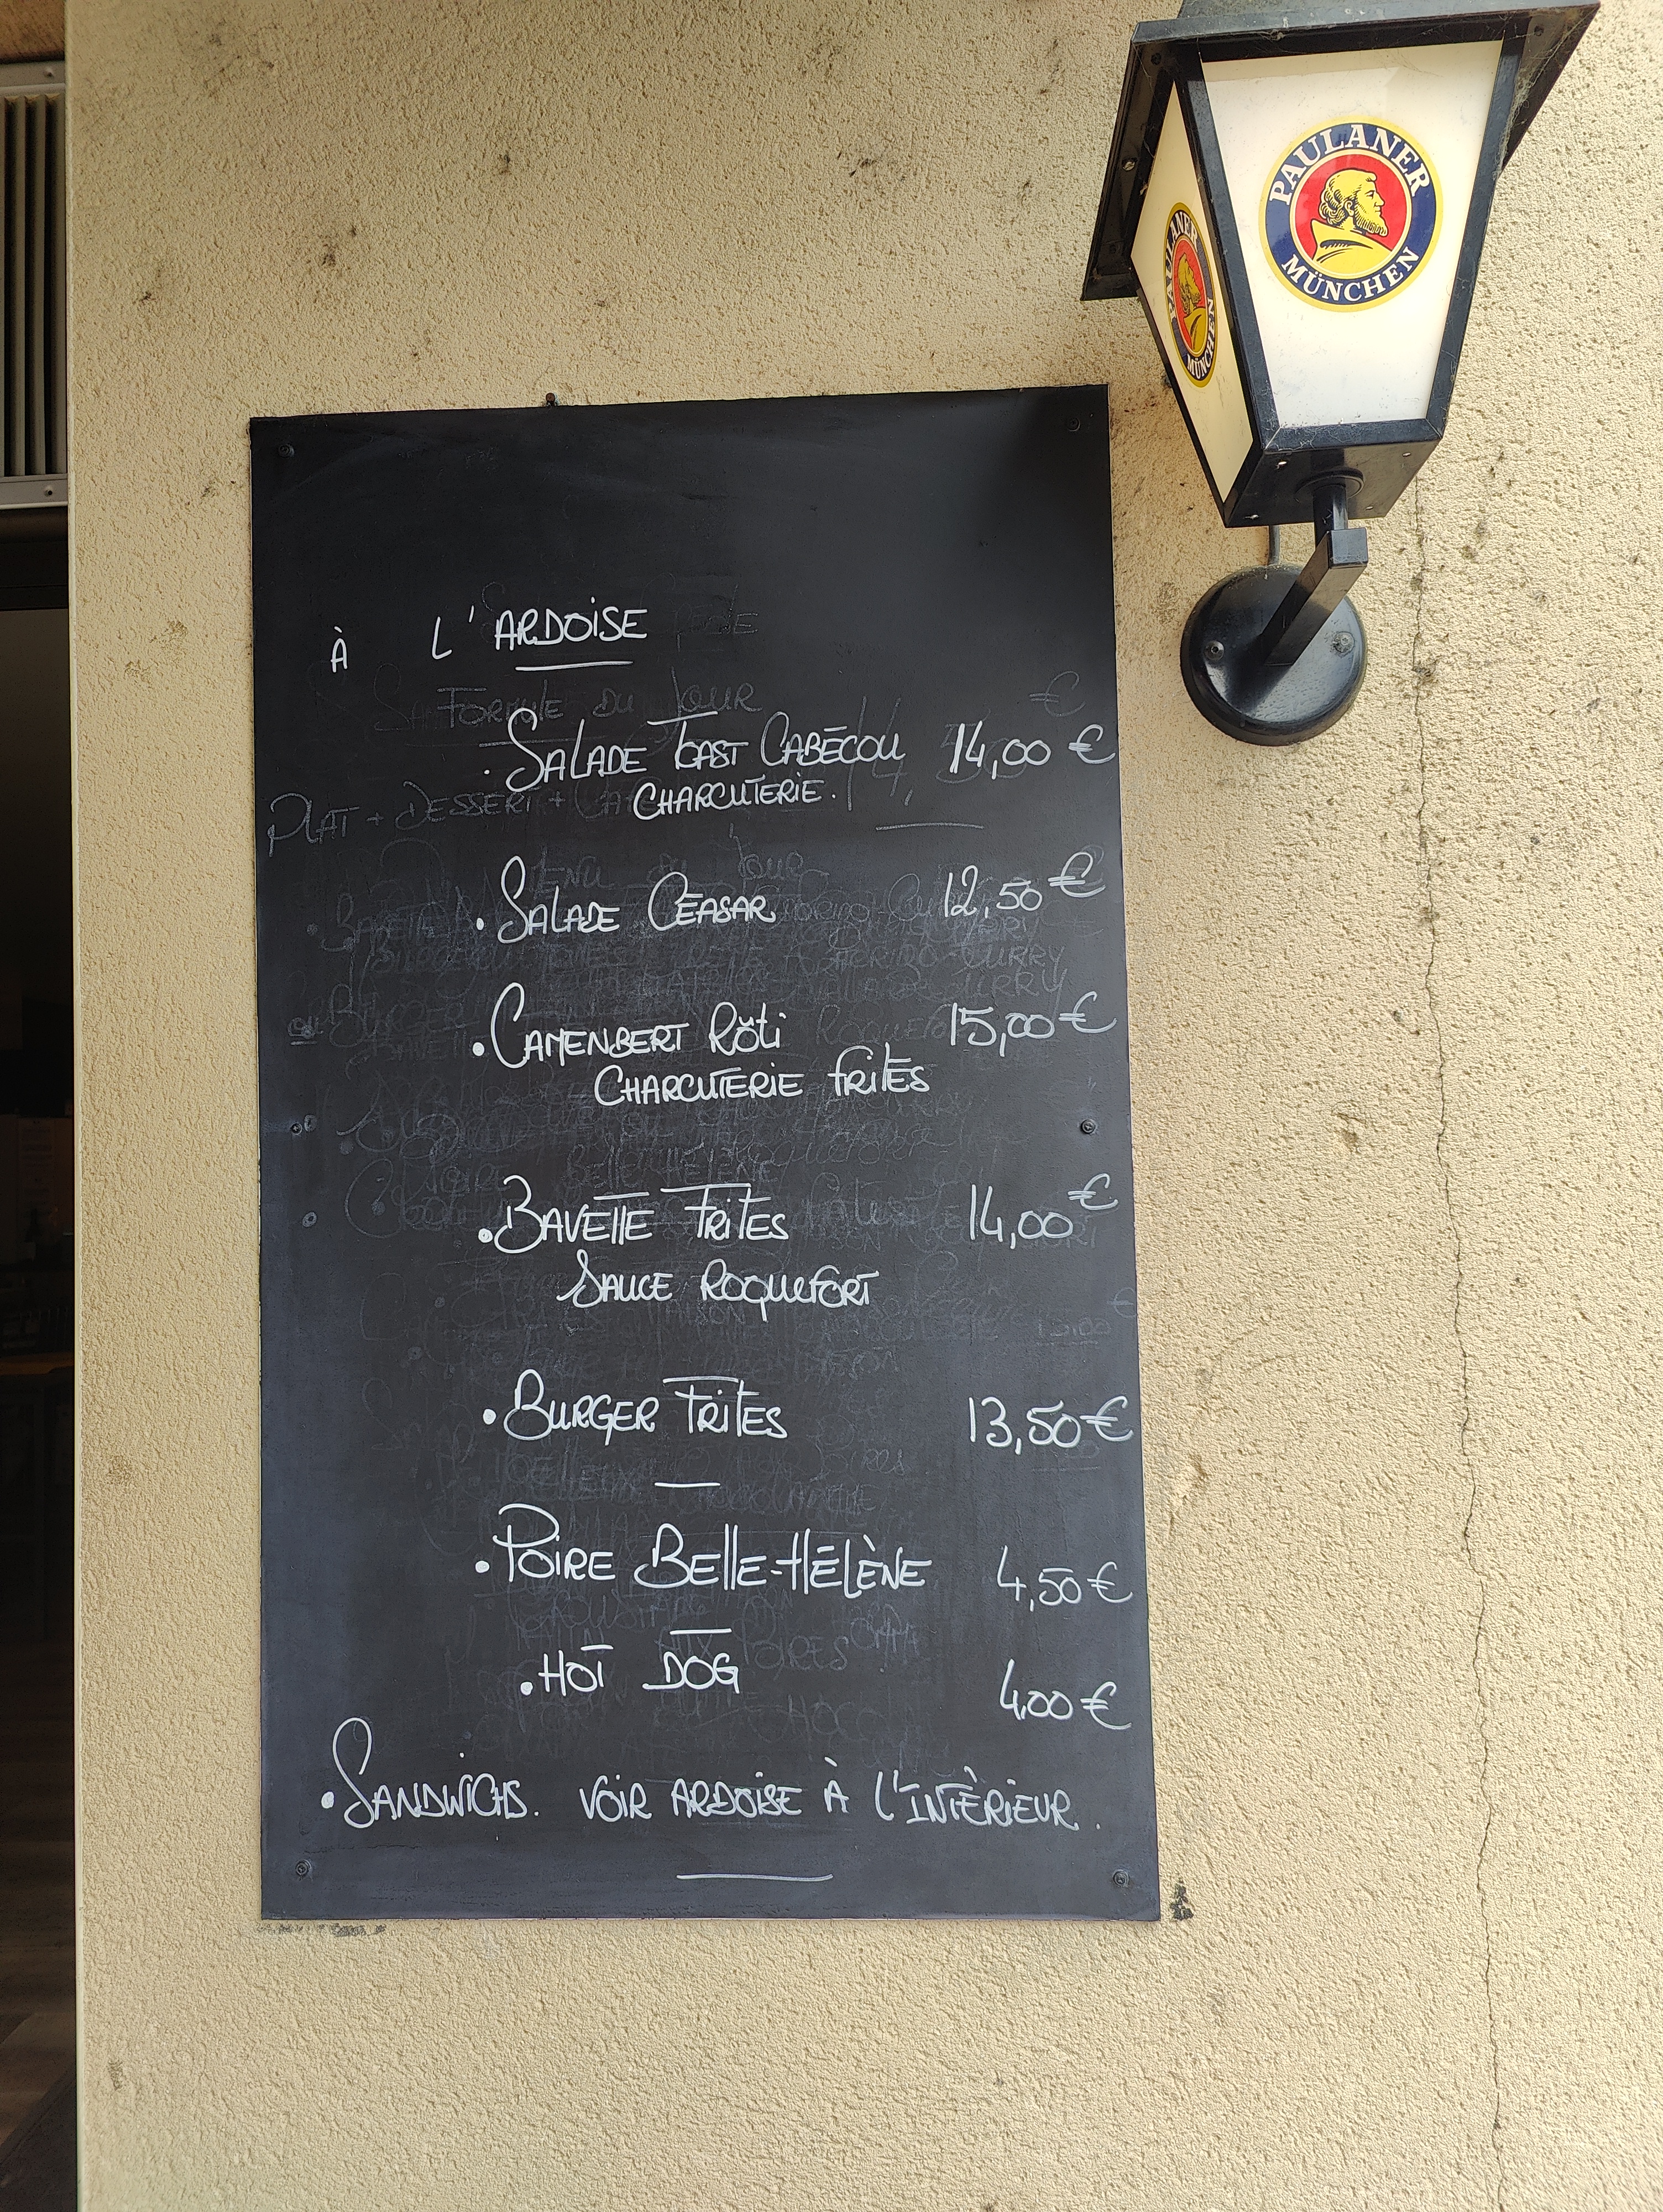 PAULANER
MÜNCHEN
PAULANER
MÜNCHEN
À L'ARDOISE
FORMULE DU JOUR
. SALADE TOAST CABÉCOU 14,00 €
CHARCUTERIE.
PLAT + DESSERT +
. SALADE CÉASAR 12,50 €
. CAMENBERT RÔTI 15,00 €
CHARCUTERIE FRITES
. BAVETTE FRITES 14,00 €
SAUCE ROQUEFORT
. BURGER FRITES 13,50 €
. POIRE BELLE-HÉLÈNE 4,50 €
. HOT DOG 4,00 €
. SANDWICHS. VOIR ARDOISE À L'INTÈRIEUR.